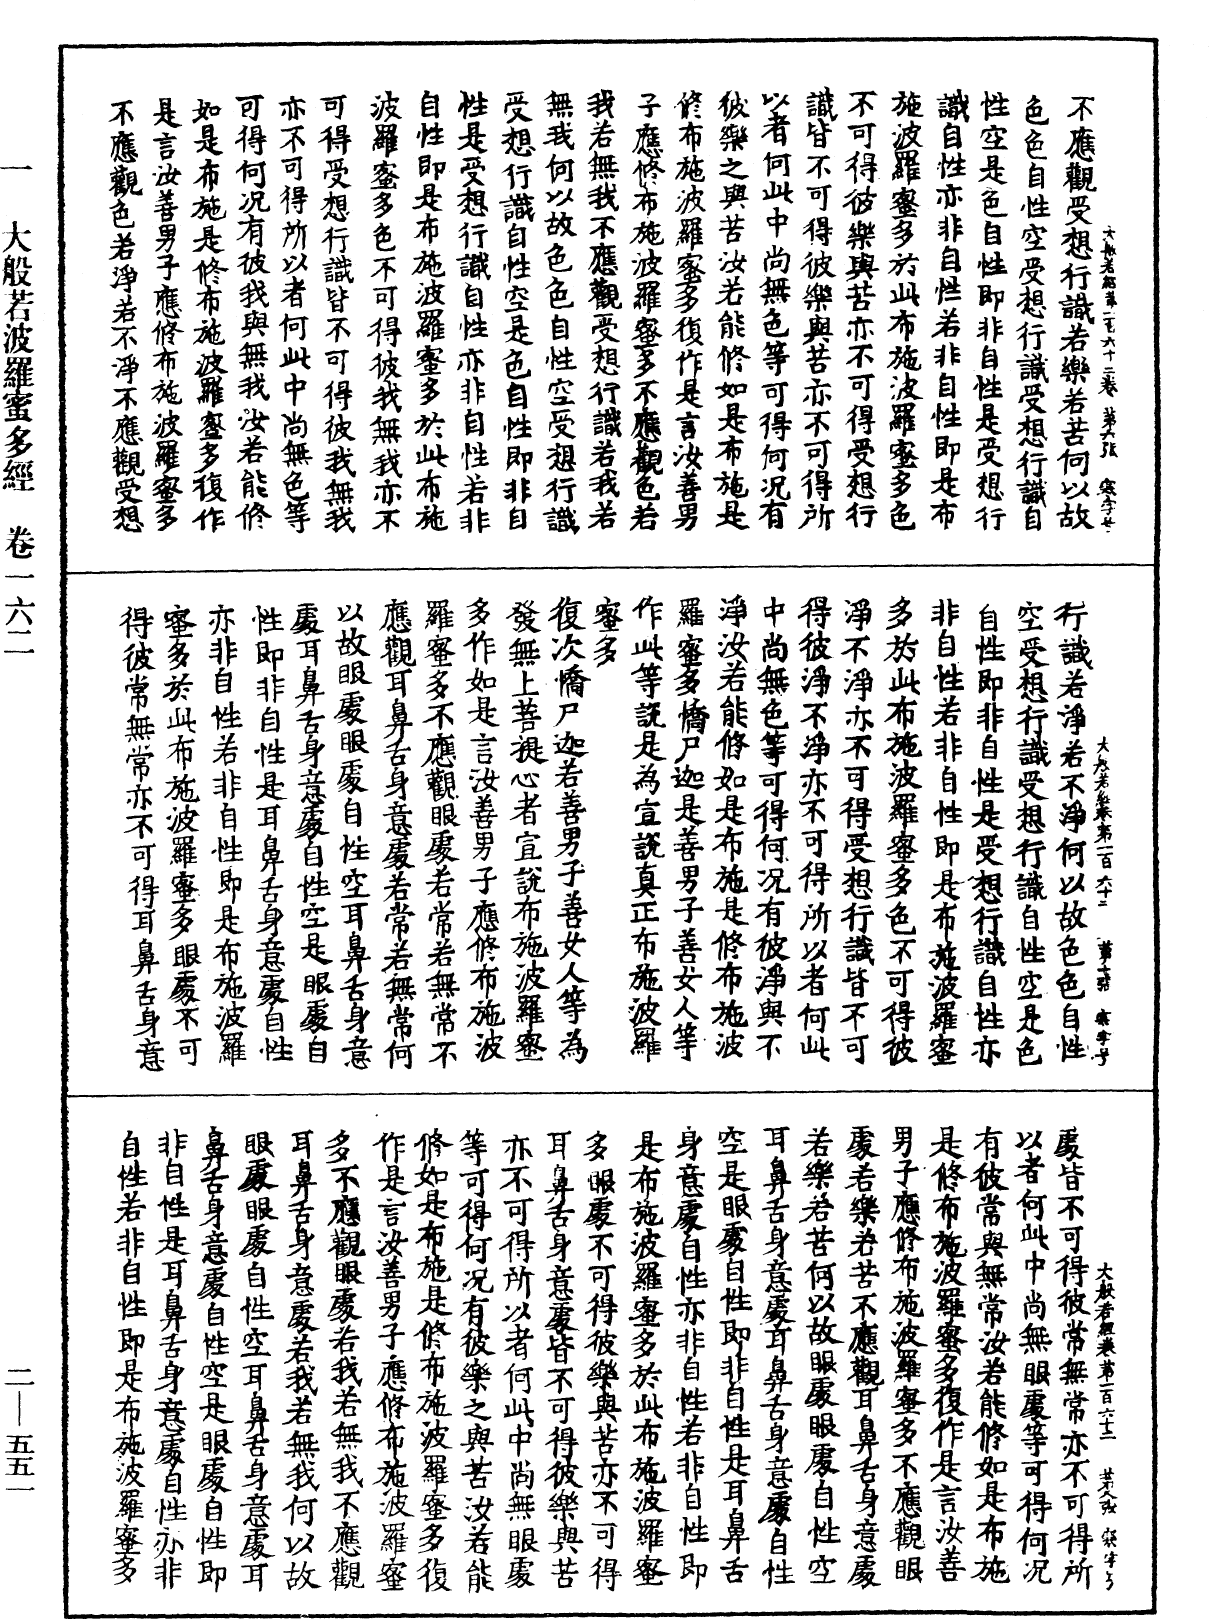 一　大般若波羅蜜多經　卷一六二
二—五五一
不應觀受想行識若樂若苦何以故
色色自性空受想行識受想行識自
性空是色自性即非自性是受想行
識自性亦非自性若非自性即是布
施波羅蜜多於此布施波羅蜜多色
不可得彼樂與苦亦不可得受想行
識皆不可得彼樂與苦亦不可得所
以者何此中尚無色等可得何况有
彼樂之與苦汝若能修如是布施是
修布施波羅蜜多復作是言汝善男
子應修布施波羅蜜多不應觀色若
我若無我不應觀受想行識若我若
無我何以故色色自性空受想行識
受想行識自性空是色自性即非自
性是受想行識自性亦非自性若非
自性即是布施波羅蜜多於此布施
波羅蜜多色不可得彼我無我亦不
可得受想行識皆不可得彼我無我
亦不可得所以者何此中尚無色等
可得何况有彼我與無我汝若能修
如是布施是修布施波羅蜜多復作
是言汝善男子應修布施波羅蜜多
不應觀色若淨若不淨不應觀受想
大般若經第一百六十二卷　第六張　寒字号
行識若淨若不淨何以故色色自性
空受想行識受想行識自性空是色
自性即非自性是受想行識自性亦
非自性若非自性即是布施波羅蜜
多於此布施波羅蜜多色不可得彼
淨不淨亦不可得受想行識皆不可
得彼淨不淨亦不可得所以者何此
中尚無色等可得何况有彼淨與不
淨汝若能修如是布施是修布施波
羅蜜多憍尸迦是善男子善女人等
作此等說是為宣說真正布施波羅
蜜多
復次憍尸迦若善男子善女人等為
發無上菩提心者宣說布施波羅蜜
多作如是言汝善男子應修布施波
羅蜜多不應觀眼處若常若無常不
應觀耳鼻舌身意處若常若無常何
以故眼處眼處自性空耳鼻舌身意
處耳鼻舌身意處自性空是眼處自
性即非自性是耳鼻舌身意處自性
亦非自性若非自性即是布施波羅
蜜多於此布施波羅蜜多眼處不可
得彼常無常亦不可得耳鼻舌身意
大般若經卷第一百六十二　第七張　寒字号
處皆不可得彼常無常亦不可得所
以者何此中尚無眼處等可得何况
有彼常與無常汝若能修如是布施
是修布施波羅蜜多復作是言汝善
男子應修布施波羅蜜多不應觀眼
處若樂若苦不應觀耳鼻舌身意處
若樂若苦何以故眼處眼處自性空
耳鼻舌身意處耳鼻舌身意處自性
空是眼處自性即非自性是耳鼻舌
身意處自性亦非自性若非自性即
是布施波羅蜜多於此布施波羅蜜
多眼處不可得彼樂與苦亦不可得
耳鼻舌身意處皆不可得彼樂與苦
亦不可得所以者何此中尚無眼處
等可得何况有彼樂之與苦汝若能
修如是布施是修布施波羅蜜多復
作是言汝善男子應修布施波羅蜜
多不應觀眼處若我若無我不應觀
耳鼻舌身意處若我若無我何以故
眼處眼處自性空耳鼻舌身意處耳
鼻舌身意處自性空是眼處自性即
非自性是耳鼻舌身意處自性亦非
自性若非自性即是布施波羅蜜多
大般若經卷第一百六十二　第八張　寒字号